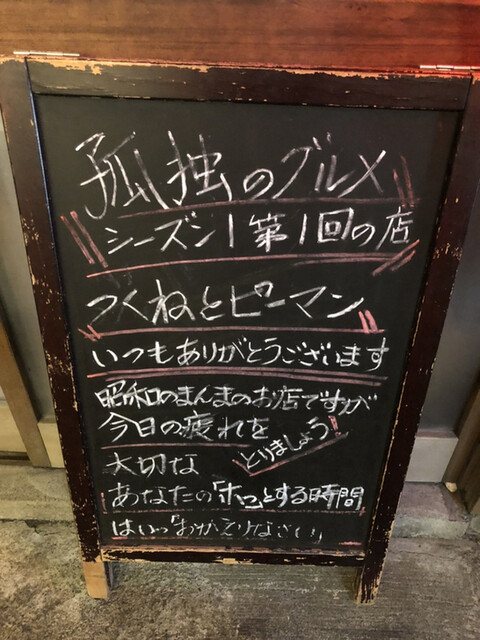 孤独のグルメ
シーズン1第1回の店
つくねとピーマン
いつもありがとうございます
昭和のまんまのお店ですが
今日の疲れを
とりましょう!
大切な
あなたの「ホッ」とする時間
はいっ「おかえりなさい」